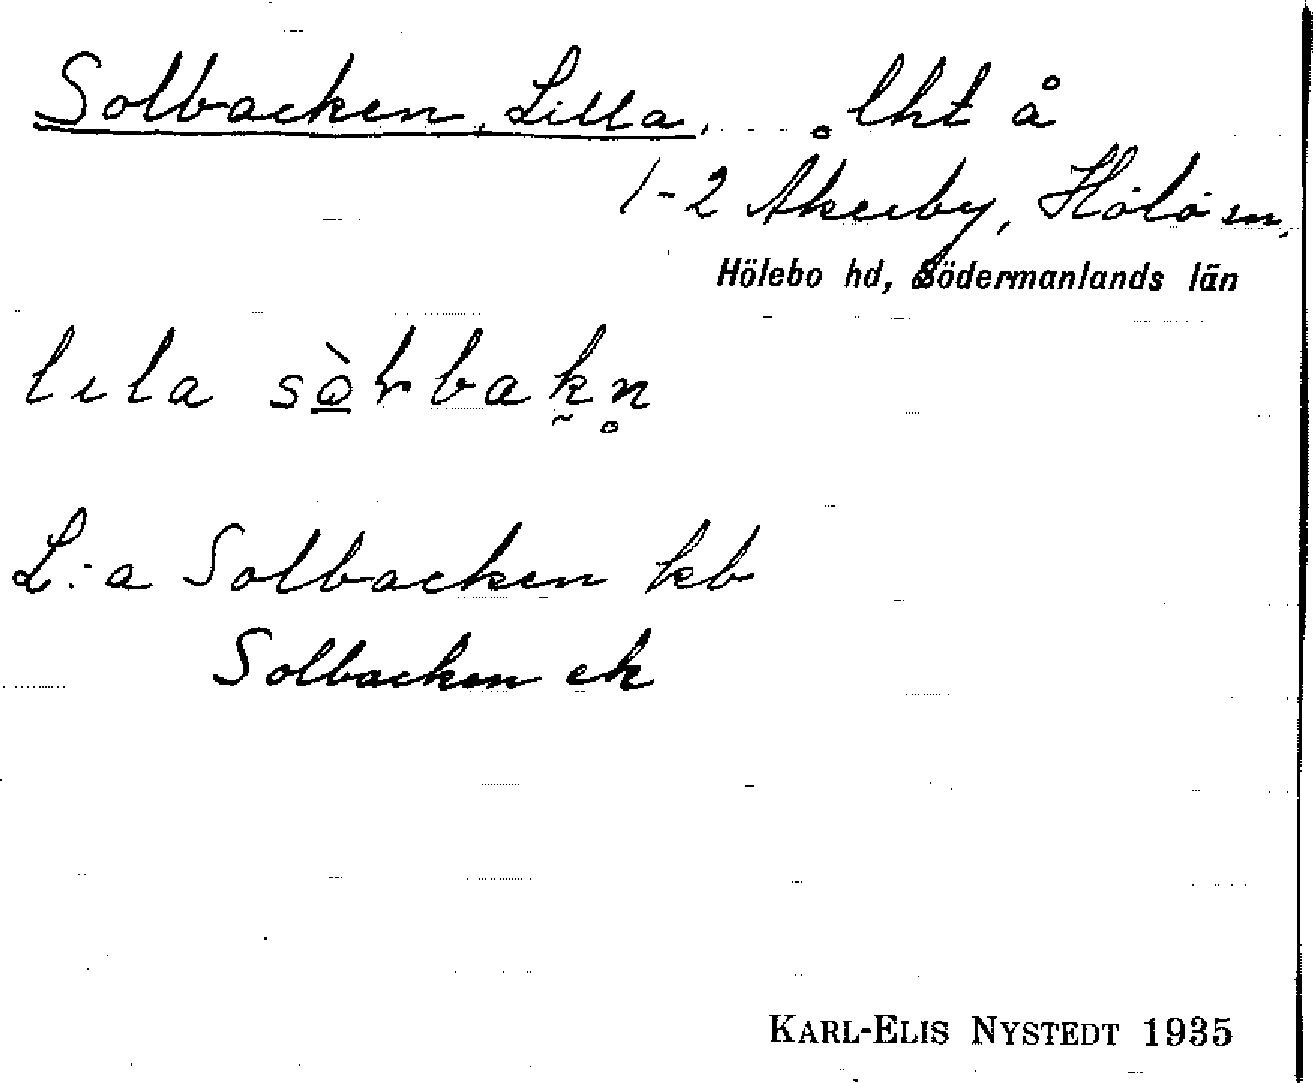 Solbacken, Lilla, lht å
1-2 Åkerby, Hölö sn,
Hölebo hd, Södermanlands län
lıla
L:a Solbacken kb
Solbacken ek
KARL-ELIS NYSTEDT 1935